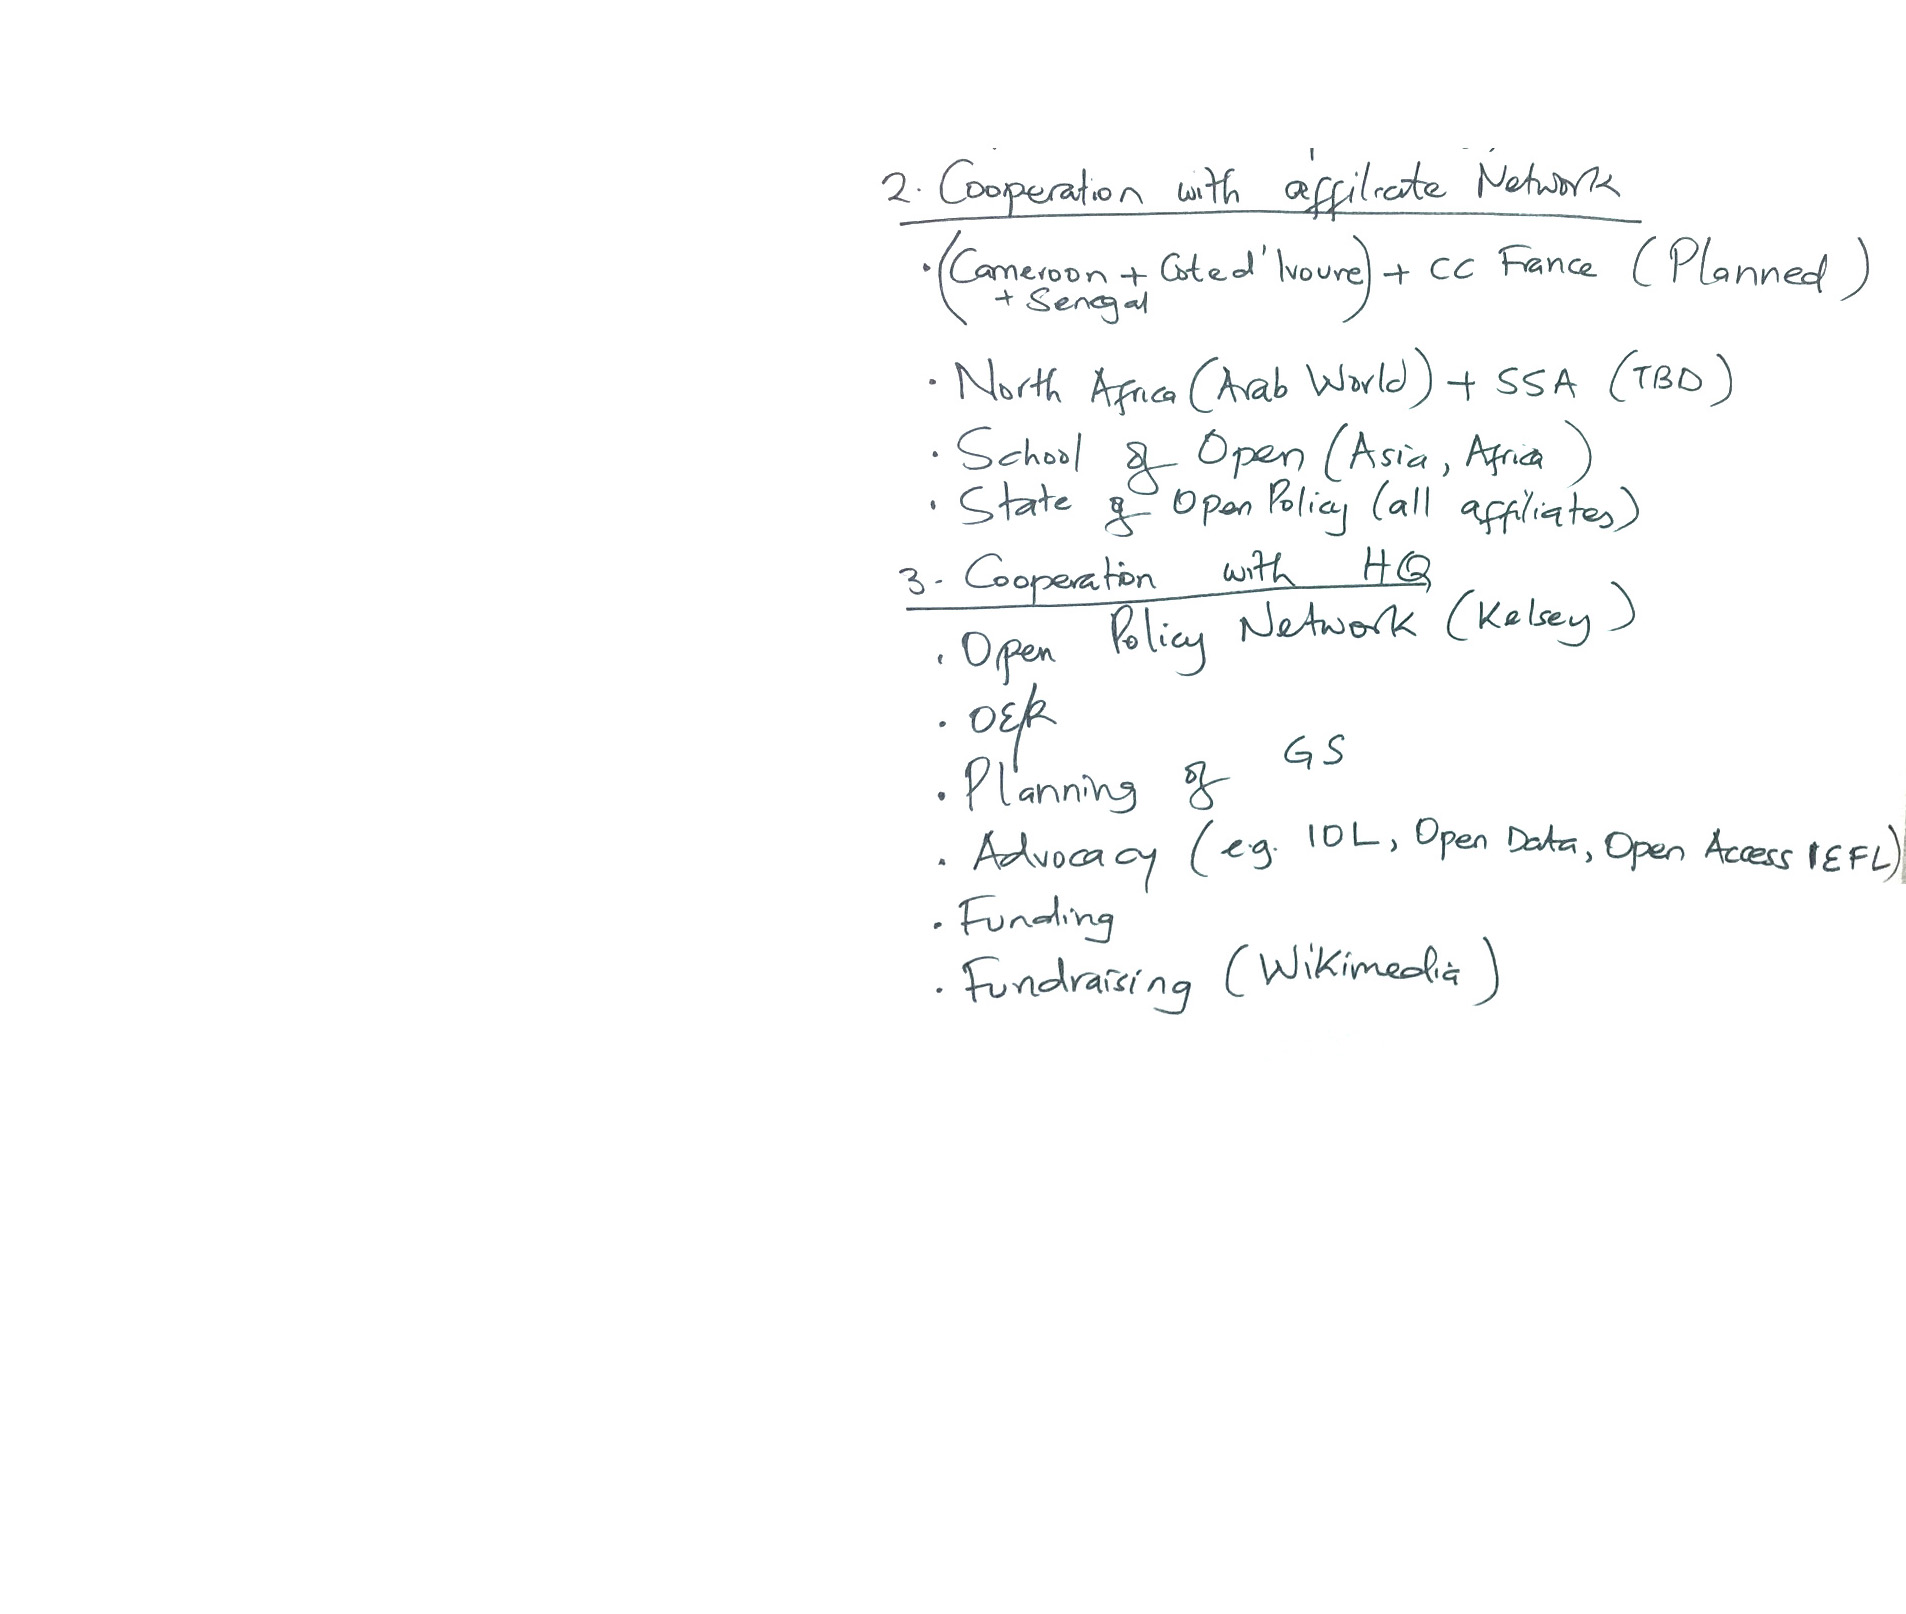 2. Cooperation with affilicate Network
· (Cameroon + Cote d'Ivoure) + CC France (Planned)
+ Senegal
· North Africa (Arab World) + SSA (TBD)
· School of Open (Asia, Africa)
· State of Open Policy (all affiliates)
3- Cooperation with HQ
· Open Policy Network (Kelsey)
· OER
· Planning of GS
· Advocacy (e.g. IDL, Open Data, Open Access IEFL)
· Funding
· Fundraising (Wikimedia)